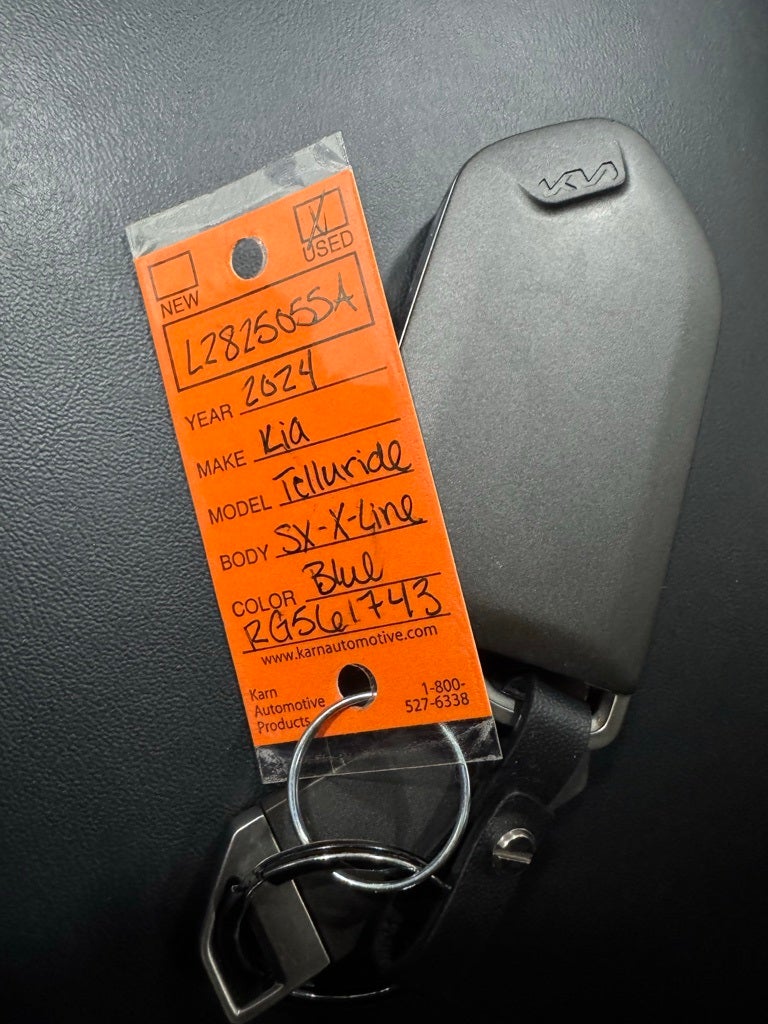 NEW
X
USED
L282505SA
YEAR 2024
MAKE Kia
MODEL Telluride
BODY SX-X-Line
COLOR Blue
RG561743
www.karnautomotive.com
Karn
Automotive
Products
1-800-
527-6338
KIA